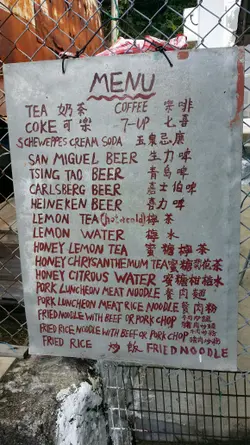 MENU
TEA 奶茶 COFFEE 啡
COKE 可樂 7-UP 七喜
SCHWEPPES CREAM SODA 玉泉忌廉
SAN MIGUEL BEER 生力啤
TSING TAO BEER 青島啤
CARLSBERG BEER 嘉士伯啤
HEINEKEN BEER 喜力啤
LEMON TEA (hot, cold) 檸茶
LEMON WATER 檸水
HONEY LEMON TEA 蜜糖檸茶
HONEY CHRYSANTHEMUM TEA 蜜糖菊花茶
HONEY CITROUS WATER 蜜糖柑桔水
PORK LUNCHEON MEAT NOODLE 餐肉麵
PORK LUNCHEON MEAT RICE NOODLE 餐肉粉
FRIED NOODLE WITH BEEF OR PORK CHOP
FRIED RICE NOODLE WITH BEEF OR PORK CHOP
FRIED RICE 炒飯 FRIED NOODLE